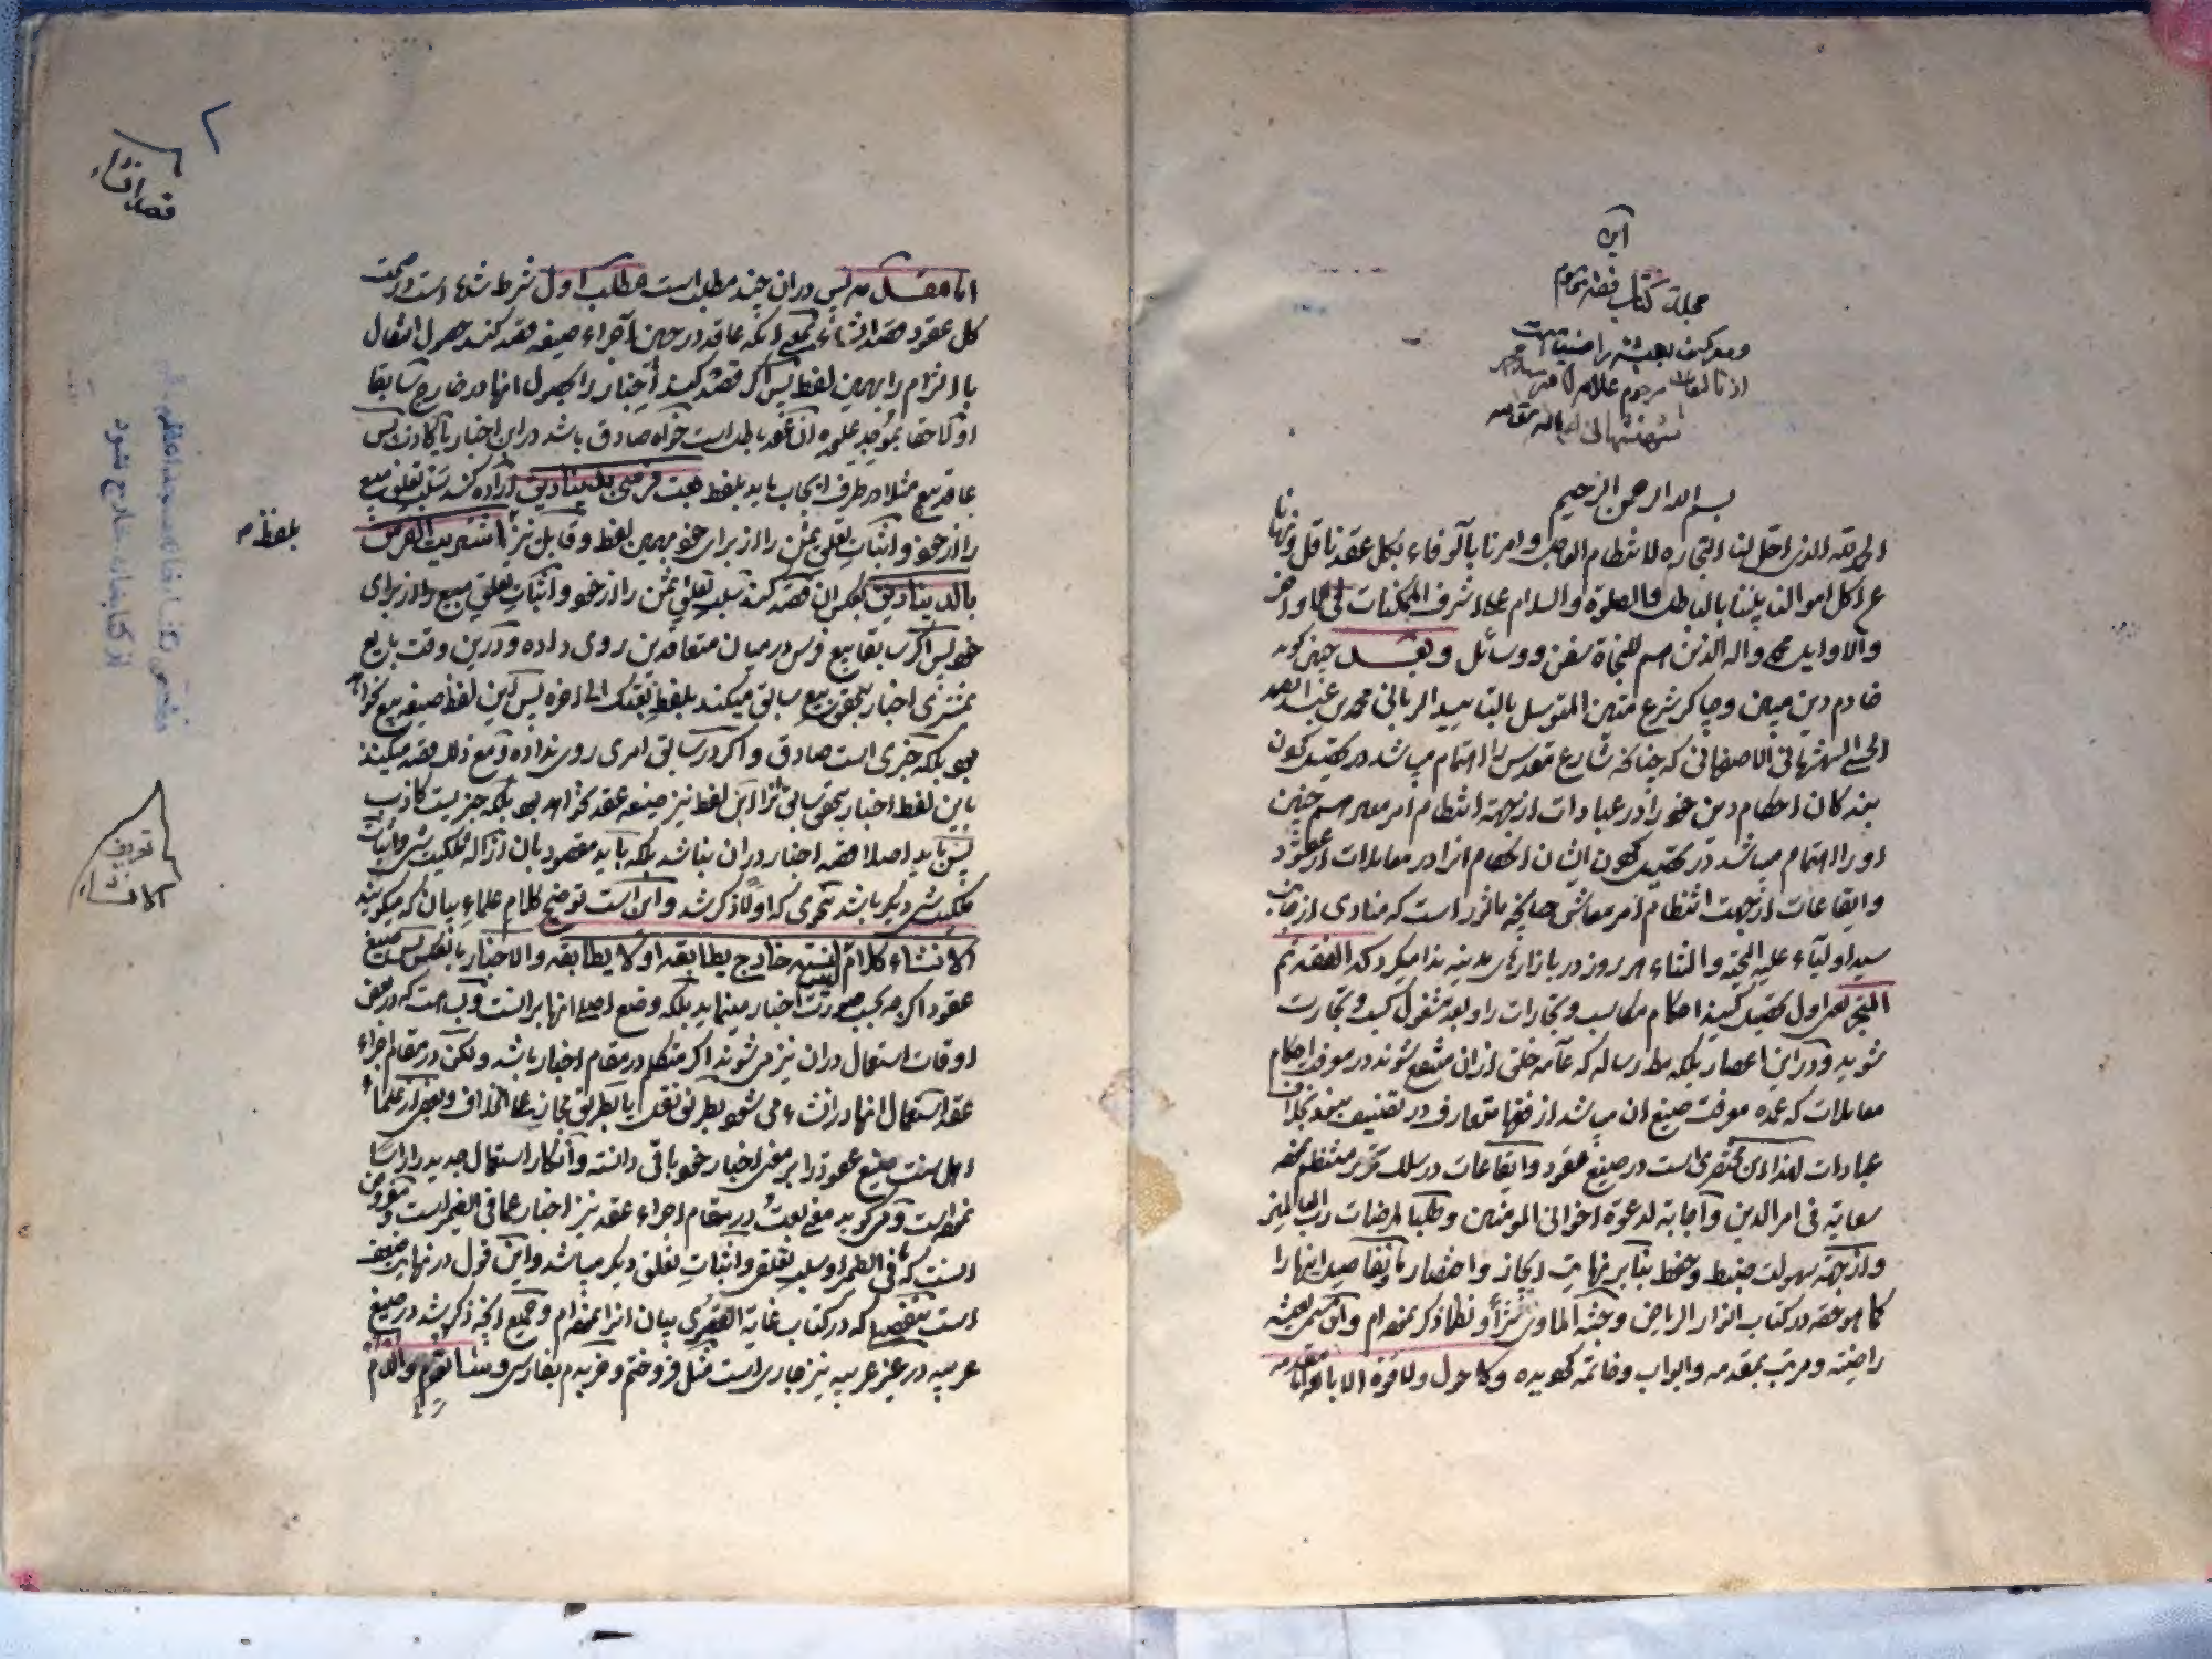 این
مجلد کتاب فقه مرحوم
راضیة است
از تالیفات مرحوم علامه
شهشهانی
بسم الله الرحمن الرحیم
الحمد لله الذی احل لنا التجارة لانتظام العاجل وامرنا بالوفاء بکل عقد ناقل ونهانا
عن اکل اموالنا بیننا بالباطل والصلوة والسلام علی اشرف الممکنات
والاوایل محمد واله الذین هم للنجاة سفن ووسائل وبعد چنین کوید
خادم دین مبین وچاکر شرع متین المتوسل بالتایید الربانی محمد بن عبد الصمد
الحسینی الشهشهانی الاصفهانی که چنانکه شارع مقدس را اهتمام میباشد در تحصیل کردن
بندکان احکام دین خود را در عبادات از جهة انتظام امر معاد هم چنین
او را اهتمام میباشد در تحصیل کردن ایشان احکام انرا در معاملات از عقود
وایقاعات از جهت انتظام امر معاش چنانچه ماثور است که منادی از جانب
سید اولیاء علیه التحیة والثناء هر روز در بازارهای مدینه ندا میکرد که الفقه ثم
المتجر یعنی اول تحصیل کنید احکام مکاسب وتجارات را وبعد مشغول کسب وتجارت
شوید ودر این اعصار بلکه رساله که عامه خلق از ان منتفع شوند در معرفت احکام
معاملات که عمده معرفت صیغ ان میباشد از فقها متعارف در تصنیف نیست بخلاف
عبادات لهذا این مختصری است در صیغ عقود وایقاعات در سلک تحریر منتظم
سعایة فی امر الدین واجابة لدعوة اخوانی المؤمنین وطلبا لمرضات رب العالمین
واز جهة سهولت ضبط وحفظ بنا بر نهایت ایجاز واختصار تفاصیل انها را
کما هو حقه در کتاب انوار الریاض وجنة الماوی نثرا ونظما ذکر نموده ام بعیشة
راضیه ومرتب بمقدمه وابواب وخاتمه کردیده ولا حول ولا قوة الا بالله
اما مقدمه پس در ان چند مطلب است مطلب اول شرط است در صحت
کل عقود قصد انشاء بمعنی انکه عاقد در حین اجراء صیغه قصد کند حصول انتقال
یا التزام را بهمین لفظ پس اکر قصد کند اخبار را بحصول انها در خارج سابقا
او لاحقا ان عقد باطل است خواه صادق باشد در این اخبار یا کاذب پس
عاقد بیع مثلا در طرف ایجاب باید بلفظ بعت فرسی بدینارین اراده کند سلب تعلق مبیع
را از خود واثبات تعلق ثمن را از برای خود بهمین لفظ وقابل نیز اشتریت الفرس
بلفظ م
بالدینارین بعکس ان قصد کند سلب تعلق ثمن را از خود واثبات تعلق مبیع را از برای
خود پس اکر سابقا بیع فرس در میان متعاقدین روی داده ودر این وقت بایع
بمشتری اخبار بتحقق بیع سابق میکند بلفظ بعتک الی اخره پس این لفظ صیغه بیع نخواهد
بود بلکه خبری است صادق واکر در سابق امری روی نداده ومع ذلک قصد میکند
باین لفظ اخبار بتحقق سابق را این لفظ نیز صیغه عقد نخواهد بود بلکه خبریست کاذب
پس باید اصلا قصد اخبار در ان نباشد بلکه باید مقصود بان ازاله ملکیت شی واثبات
ملکیت شی دیکر باشد بنحوی که اولا ذکر شد واین است توضیح کلام علماء بیان که میکویند
الانشاء کلام لیس لنسبته خارج یطابقه او لا یطابقه والاخبار بالعکس پس صیغ
عقود اکرچه بحسب صورت اخبار مینماید بلکه وضع اصلی انها بر انست
اوقات استعمال در ان نیز می شوند اکر متکلم در مقام اخبار باشد ولکن در مقام اجراء
عقد استعمال انها در انشاء می شود بطریق نقل یا بطریق مجاز علی الخلاف وبعضی از علماء
اهل سنت صیغ عقود را بر معنی اخبار خود باقی دانسته وانکار استعمال جدید را راسا
نموده است ومی کوید معنی بعت در مقام اجراء عقد نیز اخبار عما فی الضمیر است
انست که فی الضمیر او سلب تعلق واثبات تعلق دیکر میباشد واین قول در نهایت ضعف
است بتفصیلی که در کتاب غایة القصوی بیان انرا نموده ام وجمیع انچه ذکر شد در صیغ
عربیه در غیر عربیه نیز جاری است مثل فروختم وخریدم بفارسی
قصد انشاء
تعریف
الانشاء
از کتابخانه خارج نشود